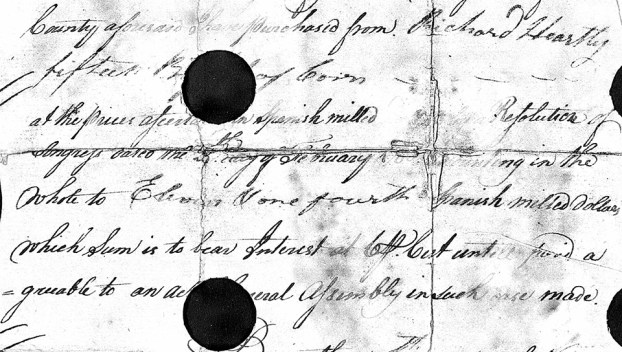 County aforesaid I have purchased from Richard Heartly
fifteen of Corn
at the prices in Spanish milled Resolution of
Congress dated the day of February in the
whole to Eleven & one fourth Spanish milled dollars
which Sum is to bear Interest at 6 P. Cent until paid a
=greeable to an act General Assembly in such case made.